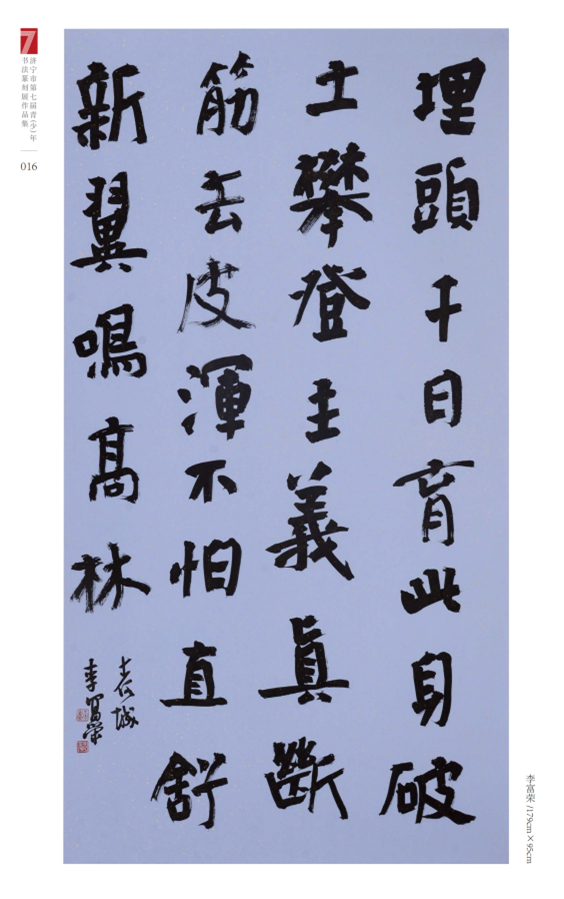 埋頭千日育此身破
土攀登主義真斷
筋去皮渾不怕直舒
新翼鳴高林
李富荣
济宁市第七届青(少)年
书法篆刻展作品集
016
李富荣/179cm×95cm